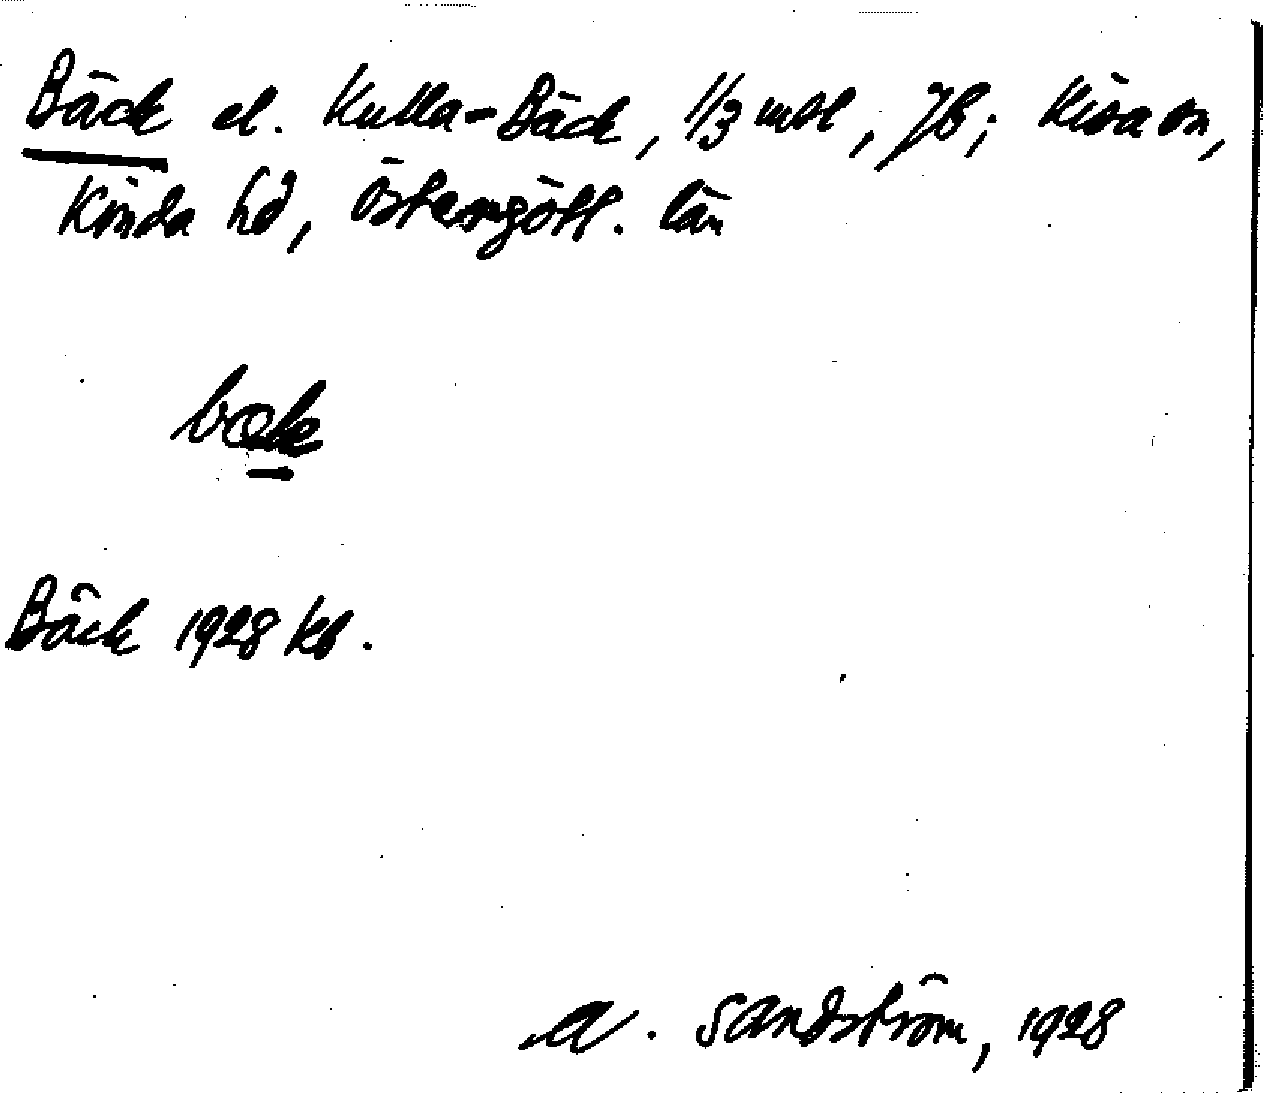 Bäck el. Kulla-Bäck, 1/3 mtl, Jb; Kisa sn,
Kinda hd, Östergötl. län
bæk
Bäck 1928 kb.
A. Sandström, 1928